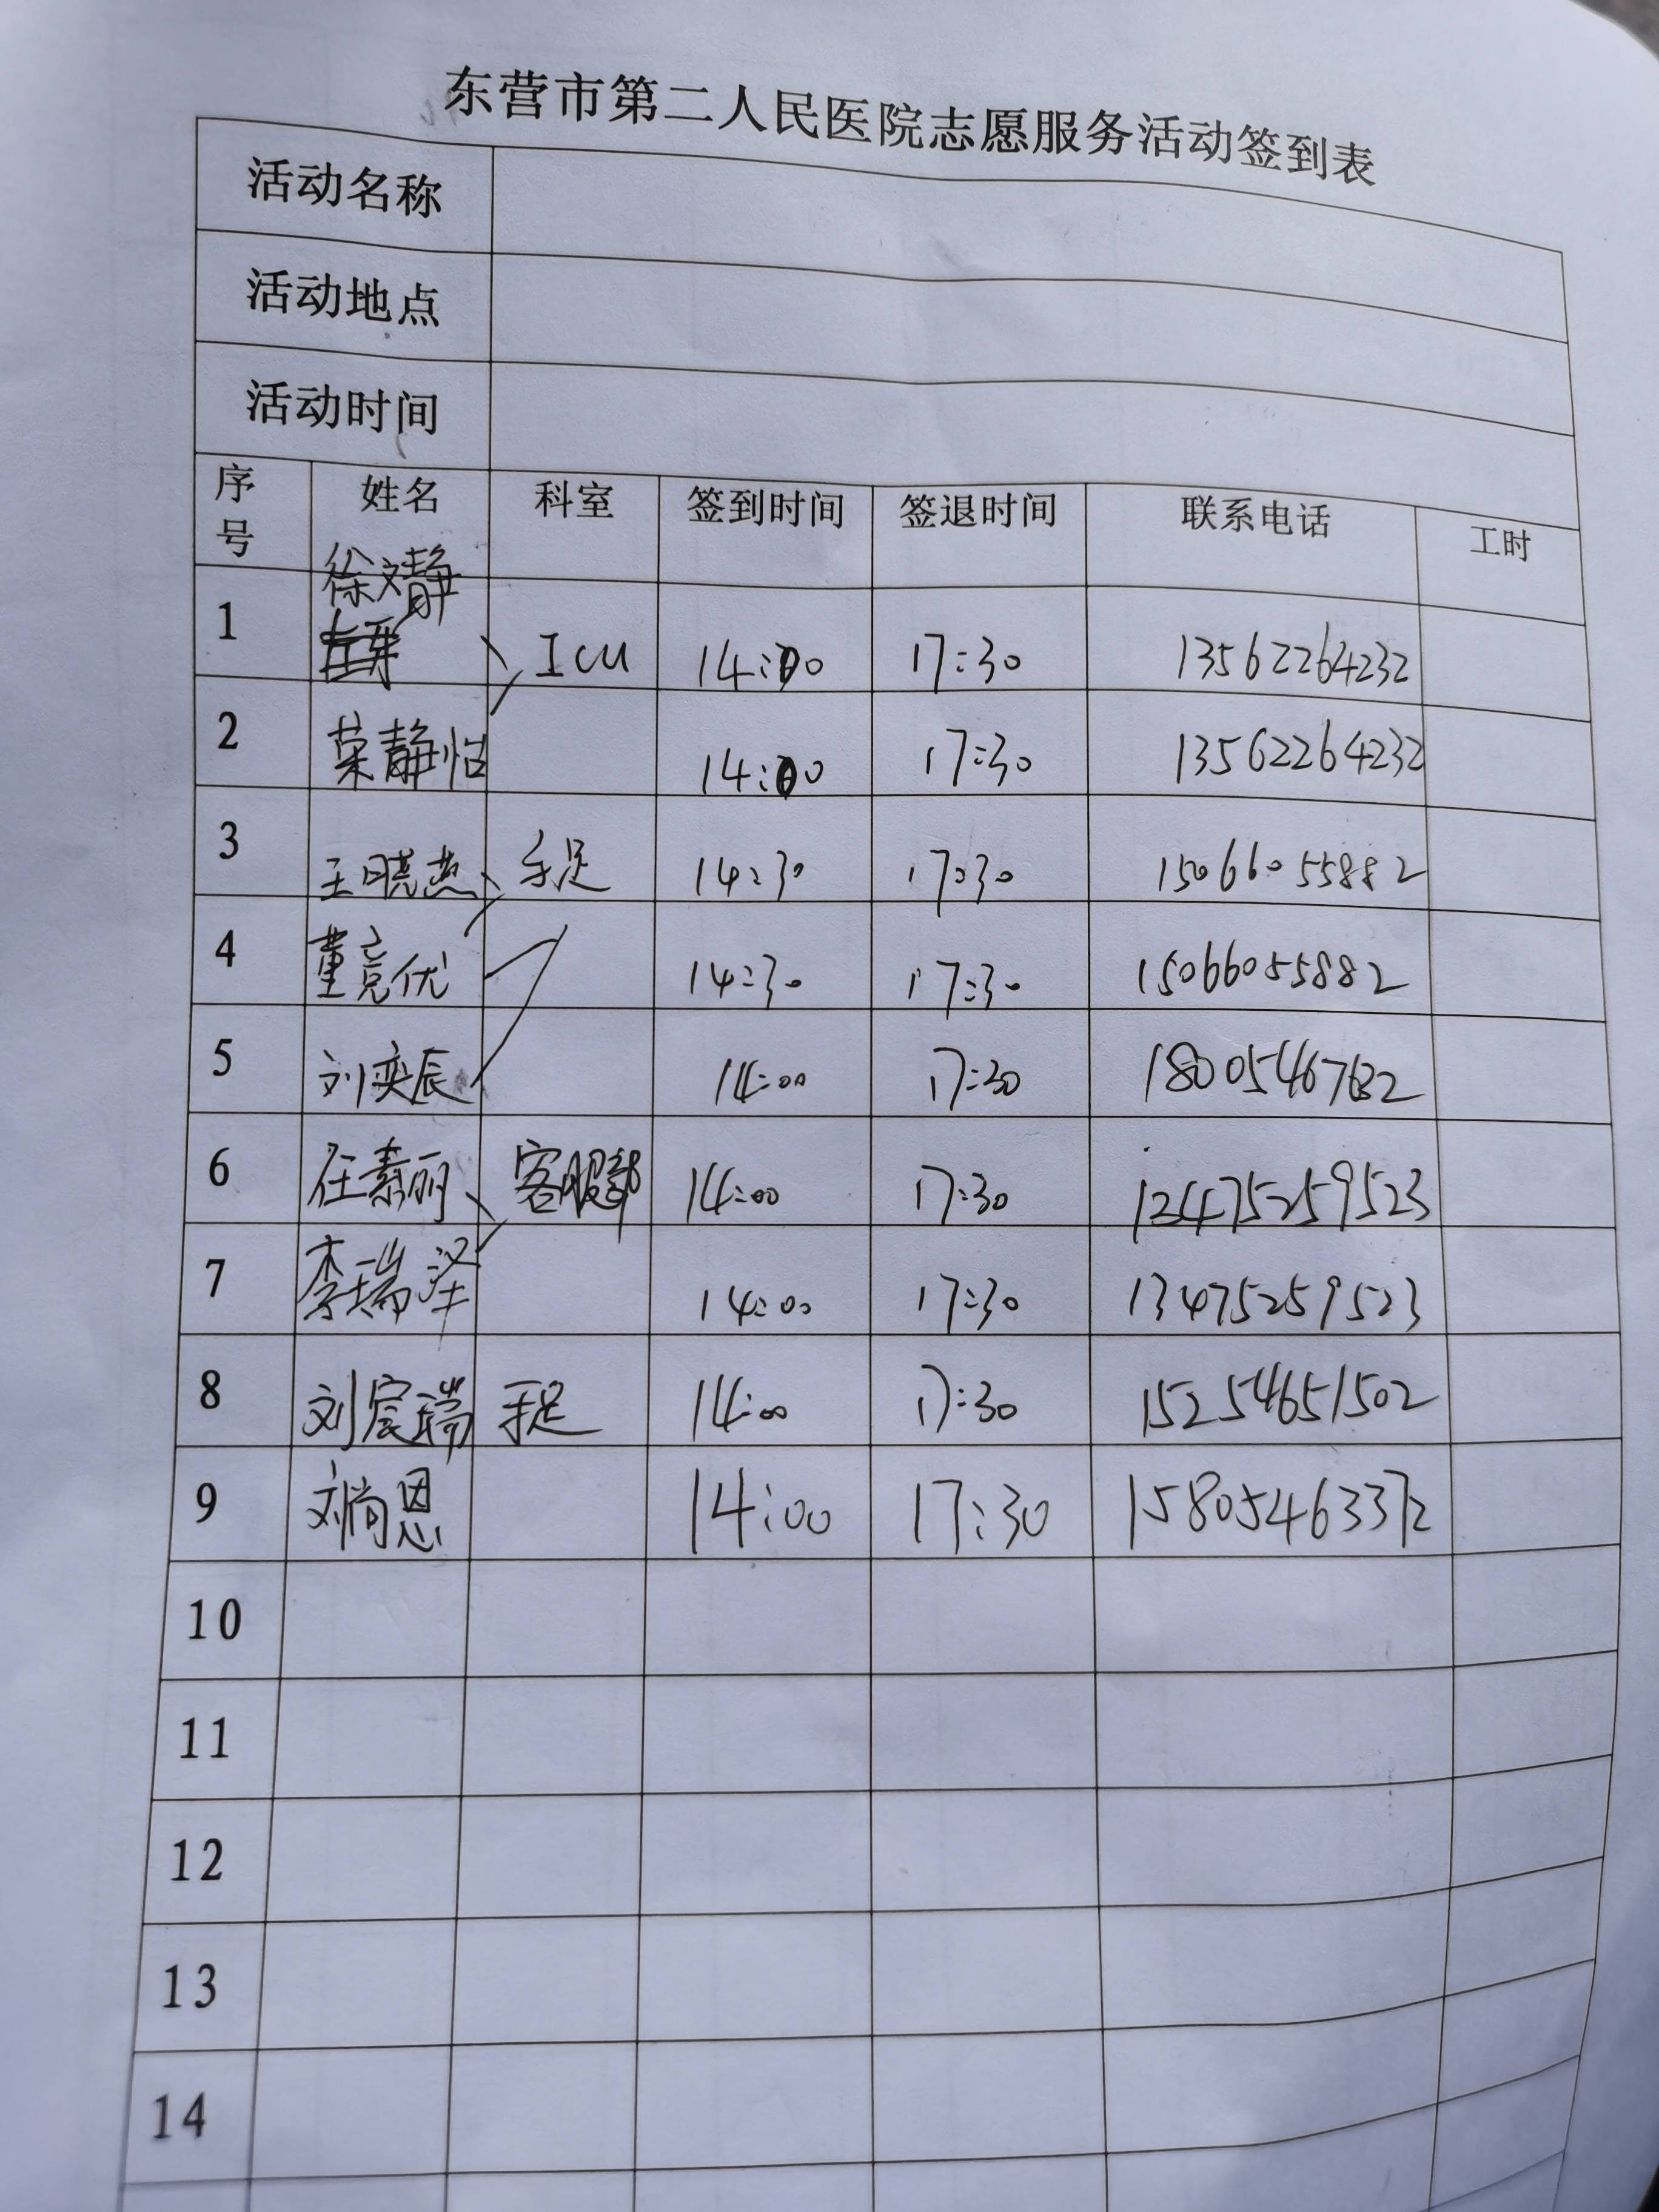 东营市第二人民医院志愿服务活动签到表
活动名称
活动地点
活动时间
序号 姓名 科室 签到时间 签退时间 联系电话 工时
徐文静
1 ICU 14:00 17:30 13562264232
2 荣静怡 14:00 17:30 13562264232
3 王晓燕 手足 14:30 17:30 15066055882
4 董竞优 14:30 17:30 15066055882
5 刘奕辰 14:00 17:30
6 任素丽 客服部 14:00 17:30
7 李瑞泽 14:00 17:30 13475259523
8 刘宸瑞 手足 14:00 17:30 15254651502
9 刘尚恩 14:00 17:30 15805463372
10
11
12
13
14